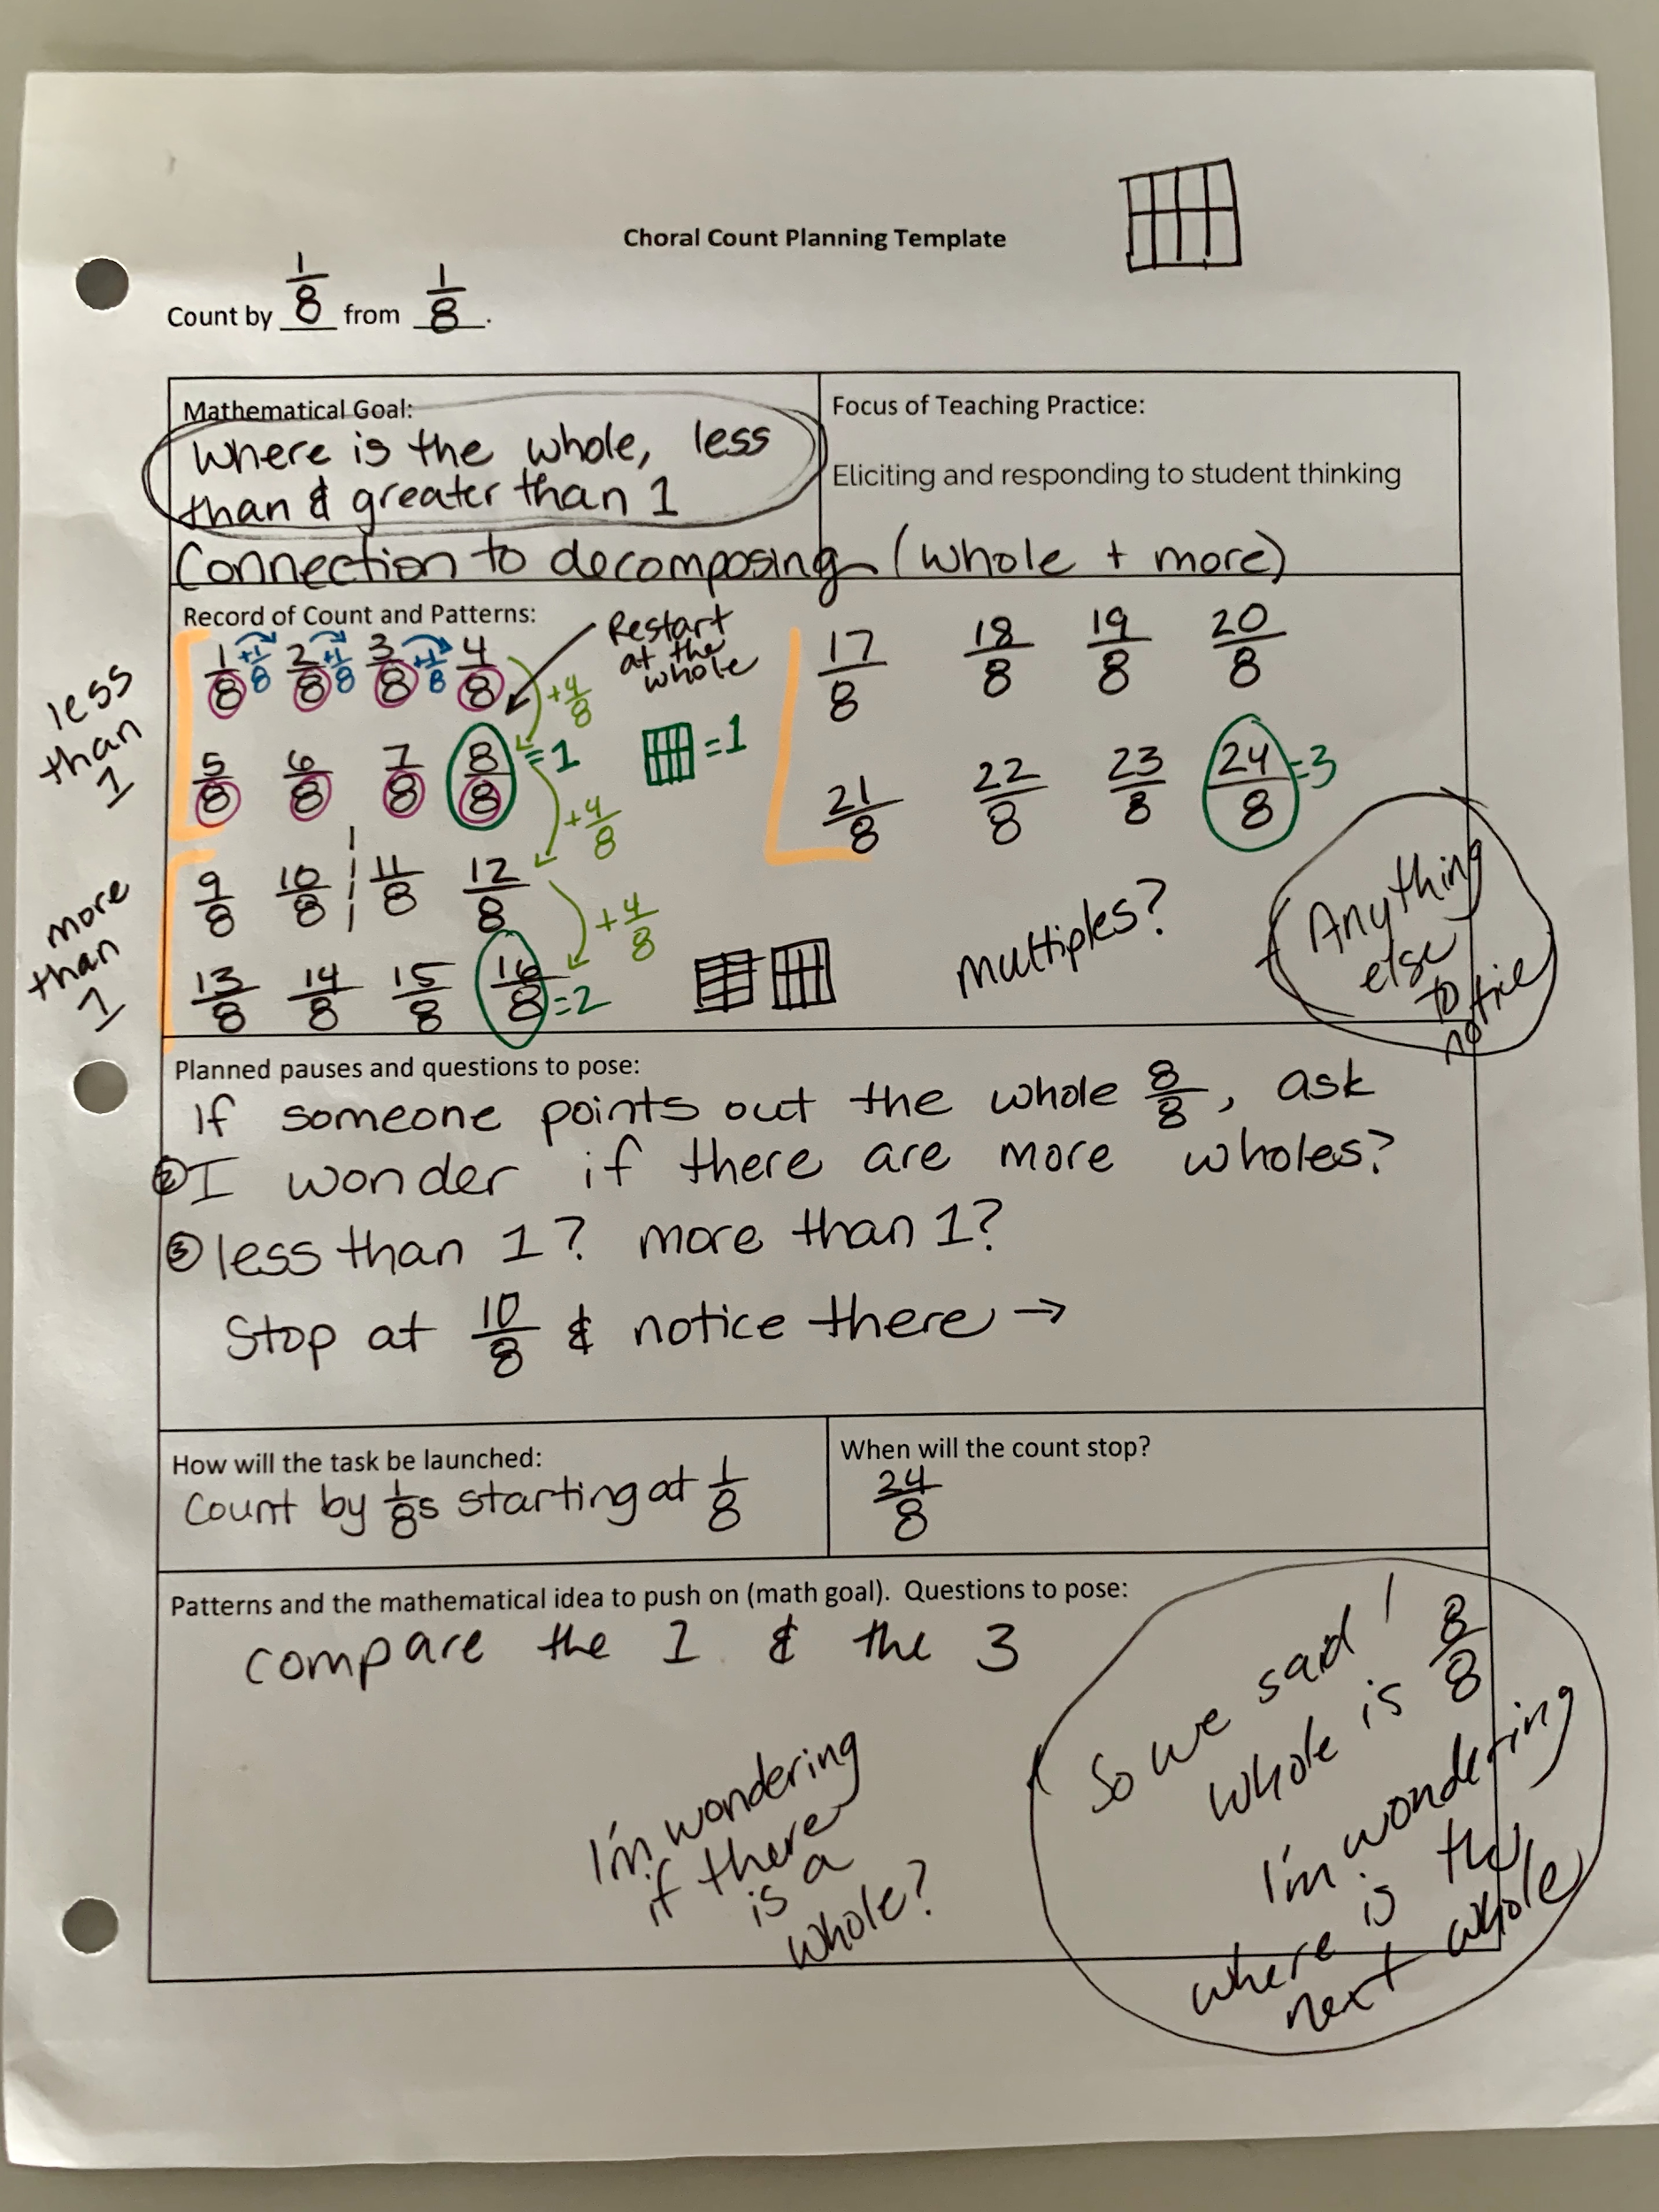 Choral Count Planning Template
Count by 1/8 from 1/8.
Mathematical Goal:
Where is the whole, less
than & greater than 1
Focus of Teaching Practice:
Eliciting and responding to student thinking
Connection to decomposing (whole + more)
Record of Count and Patterns:
Restart
at the
whole
less
than
1
1/8 +1/8 2/8 +1/8 3/8 +1/8 4/8
+4/8
5/8 6/8 7/8 8/8 =1
=1
+4/8
more
than
1
9/8 10/8 11/8 12/8
+4/8
13/8 14/8 15/8 16/8 =2
17/8 18/8 19/8 20/8
21/8 22/8 23/8 24/8 =3
multiples?
Anything
else
to
notice
Planned pauses and questions to pose:
If someone points out the whole 8/8, ask
② I wonder if there are more wholes?
③ less than 1? more than 1?
Stop at 10/8 & notice there →
How will the task be launched:
Count by 1/8s starting at 1/8
When will the count stop?
24/8
Patterns and the mathematical idea to push on (math goal). Questions to pose:
compare the 1 & the 3
I'm wondering
if there
is a
whole?
So we said 1
whole is 8/8
I'm wondering
where is the
next whole